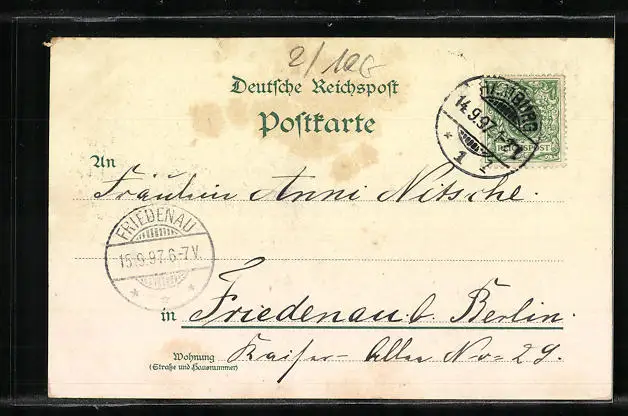 2/100
Deutsche Reichspost
Postkarte
HAMBURG
14.9.97
* 1
REICHSPOST
An
Fräulein Anni Nitsche.
FRIEDENAU
15.9.97.6-7V.
* * *
in Friedenau b. Berlin.
Wohnung
(Straße und Hausnummer)
Kaiser-Allee No= 29.